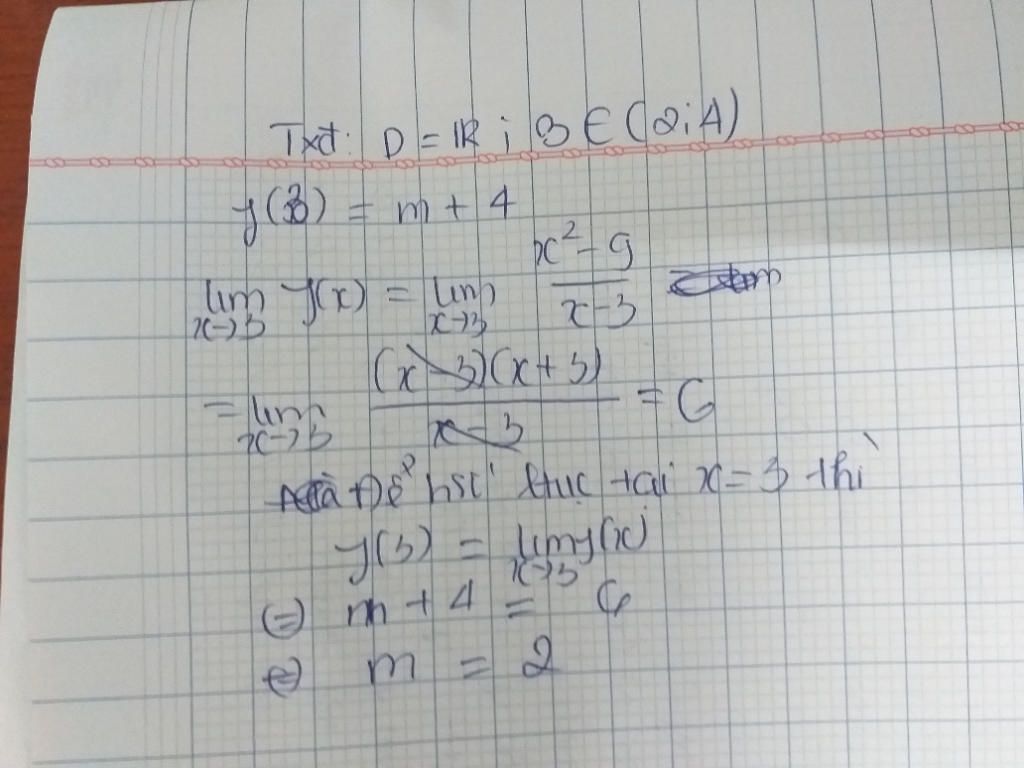 Txđ: D = ℝ ; 3 ∈ (2;4)
y(3) = m + 4
lim x→3 y(x) = lim x→3 (x² - 9)/(x - 3)
= lim x→3 (x - 3)(x + 3)/(x - 3) = 6
Để hsố ltục tại x = 3 thì
y(3) = lim x→3 y(x)
⇔ m + 4 = 6
⇔ m = 2